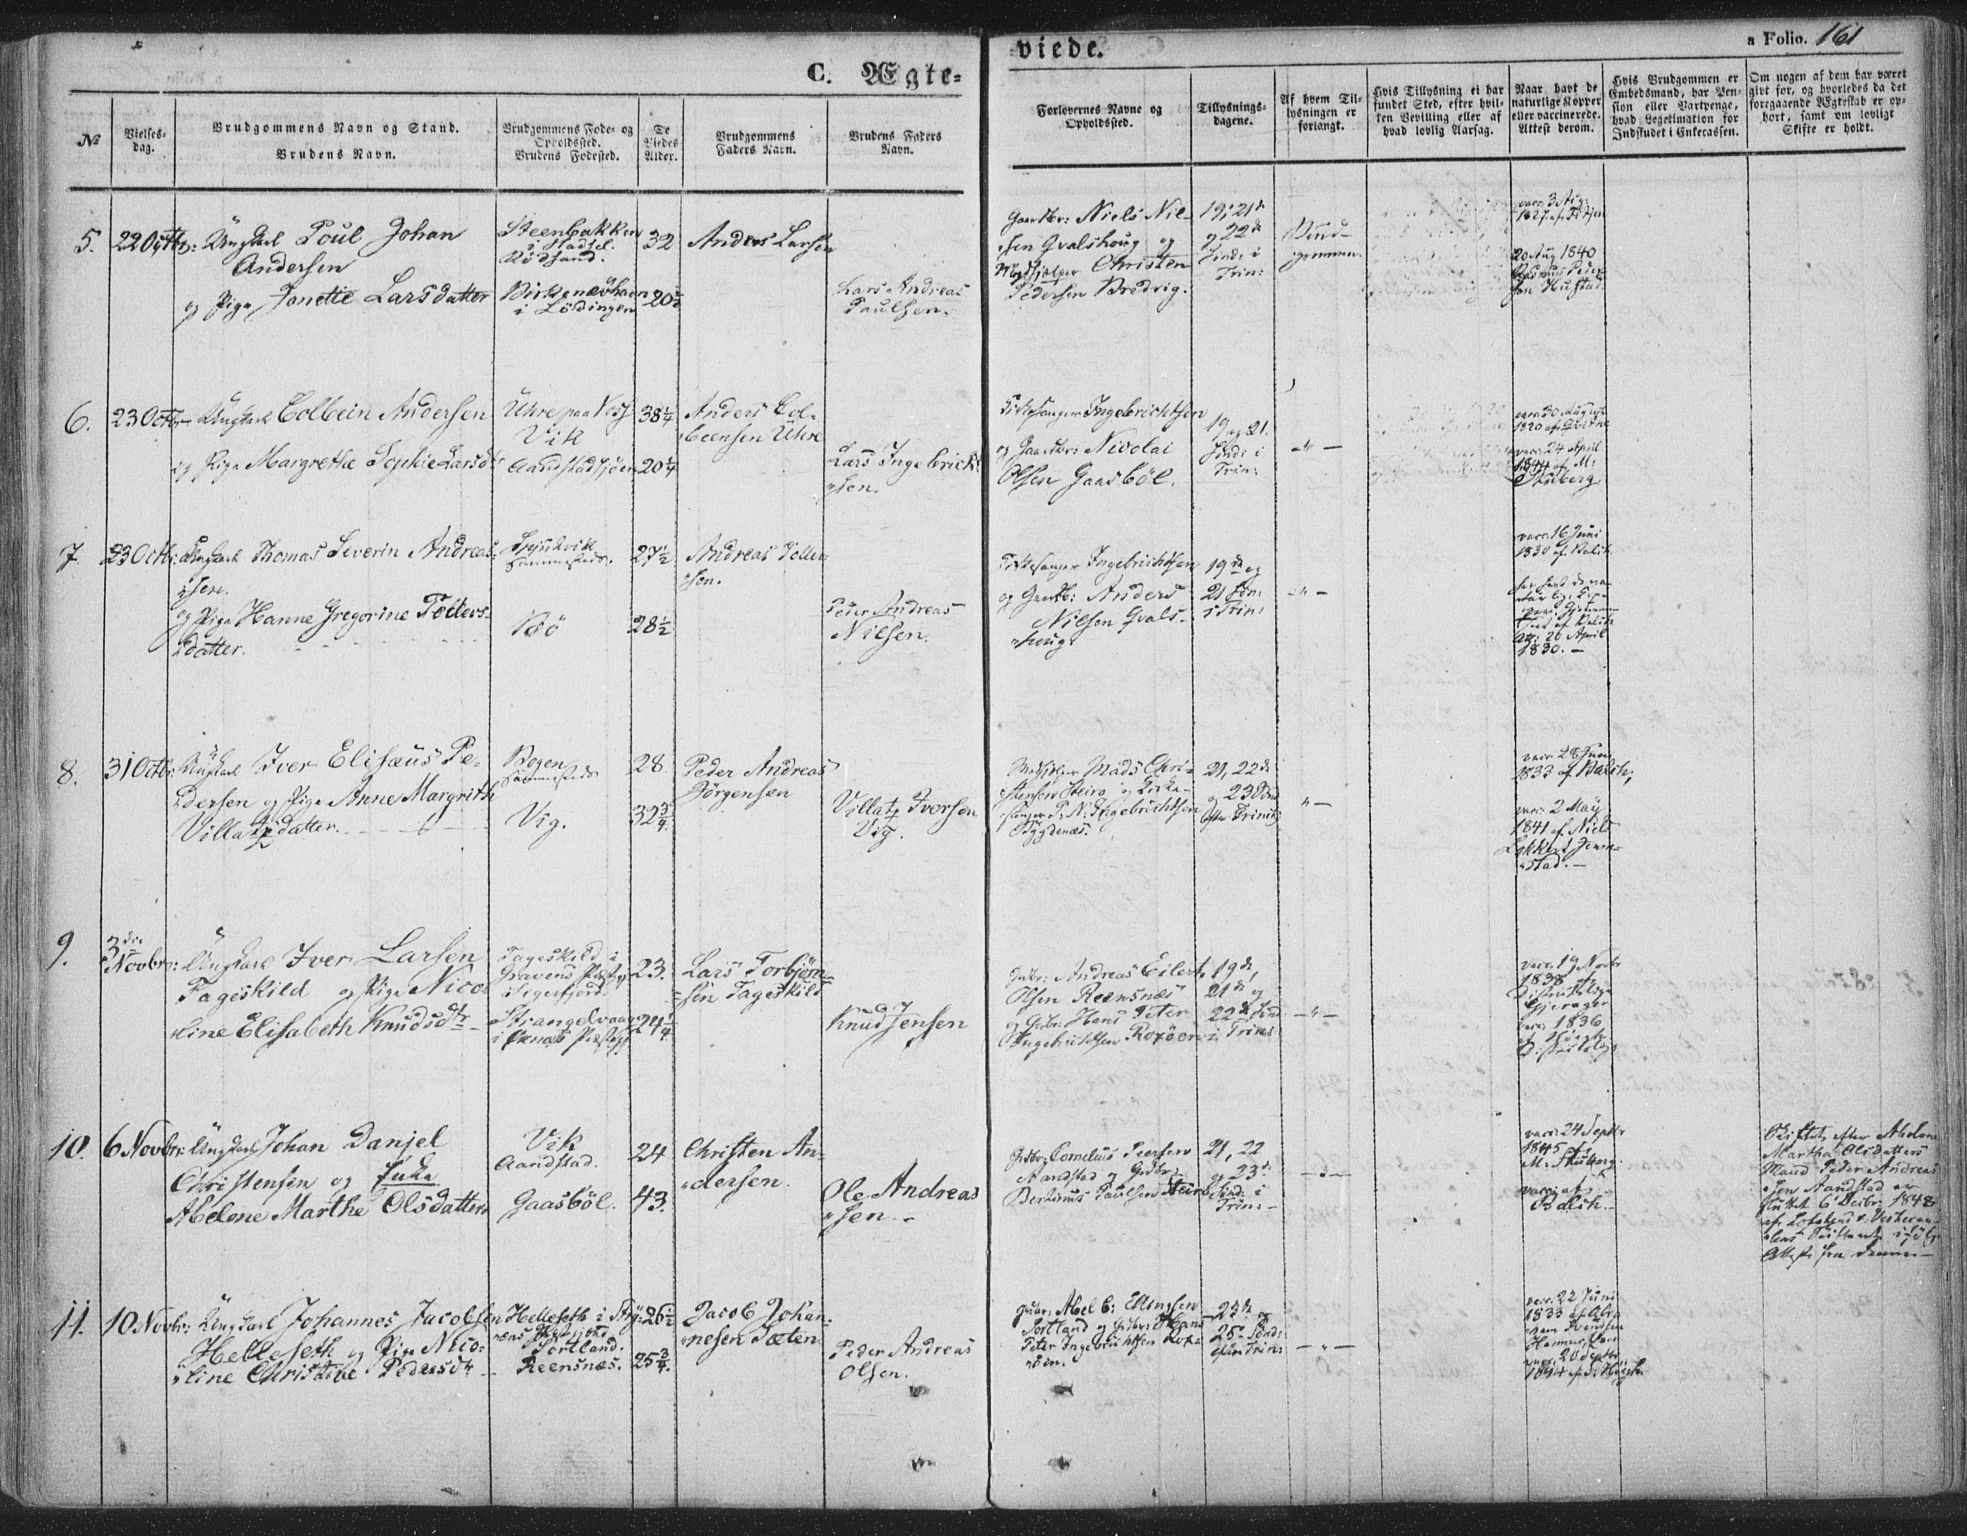 C. Ægte-
viede.
a Folio. 161
№
Vielses-
dag.
Brudgommens Navn og Stand.
Brudens Navn.
Brudgommens Føde- og
Opholdssted.
Brudens Fødested.
De
Viedes
Alder.
Brudgommens
Faders Navn.
Brudens Faders
Navn.
Forlovernes Navne og
Opholdssted.
Tillysnings-
dagene.
Af hvem Til-
lysningen er
forlangt.
Hvis Tillysning ei har
fundet Sted, efter hvil-
ken Bevilling eller af
hvad lovlig Aarsag.
Naar havt de
naturlige Kopper
eller vaccinerede.
Attest derom.
Hvis Brudgommen er
Embedsmand, har Pen-
sion eller Vartpenge,
hvad Legitimation for
Indskudet i Enkecassen.
Om nogen af dem har været
gift før, og hvorledes da det
foregaaende Ægteskab er op-
hørt, samt om lovligt
Skifte er holdt.
5. 22 Octbr: Ungkarl Poul Johan
Andersen
og Pige Jonette Larsdatter
Steenbakken
i Hadsel.
Rödsand.
Birkenæshavn
i Lödingen
32
20½
Anders Larsen
Lars Andreas
Paulsen.
Gaardbr: Niels Niel-
sen Qvalshoug og
Medhjælper Christen
Pedersen Bredvig.
19, 21de
og 22de
Sönd: i
Trin:
Brud-
gommen.
vacc: 3 Aug:
1827 af
20 Aug 1840
Rasmus Peder-
sen Hustad.
6. 23 Octbr Ungkarl Colbein Andersen
og Pige Margrethe Sophie Larsdtr
Uhre paa Voss
Vik
Aandstadsjöen
38¼
20¼
Anders Col-
beensen Uhre
Lars Ingebrigt-
sen.
Kirkesanger Ingebrichtsen
og Gaardbr: Nicolai
Olsen Gaasböl.
19 og 21.
Sönd: i
Trin:
— " —
vacc: 30 August
1820 af
vacc: 24 April
1844 af M:
Stuberg
7. 23 Octbr: Ungkarl Thomas Severin Andreas-
sen.
og Pige Hanne Gregorine Peders-
datter.
Sammesteds.
Bö
27½
28½
Andreas Toller-
sen.
Peder Andreas
Nielsen.
Kirkesanger Ingebrichtsen
og Gaardbr: Anders
Nielsen Qvals-
houg
19de og
21 Sön:
i Trin:
— " —
vacc: 16 Juni
1830 af Balch
har havt de na-
26 April
1830. —
8. 31 Octbr Ungkarl Iver Elisæus Pe-
dersen og Pige Anne Margrith
Villatzdatter.
Bogen
Sammesteds
Vig.
28
32¾
Peder Andreas
Jörgensen
Villatz Iversen
Vig.
Medhjelper Mads Chri-
stensen Steiro og Kirke-
sanger P. N. Ingebrichtsen
Bygdenæs.
21, 22de
og 23 Sönd
efter Trinit:
" —
vacc: 28 Juni
1833 af Balch;
vacc: 2 May
1841 af Niels
Lokkert Jenn-
stad. —
9. 3die
Novbr: Ungkarl Iver Larsen
Fageskild og Pige Nico-
line Elisabeth Knudsdtr
Fageskild i
Gravens Præstegj
Sigerfjord
Strangelvaag
i Öxnæs Præstegj
23.
24¼
Lars Torbjörn-
sen Fageskild
Knud Jensen
Gbr: Andreas Eilert
Olsen Reensnæs
og Gbr: Hans Peter
Ingebrichtsen Roxöen
19de,
21de og
22de Sönd
i Trin:
— " —
vacc: 19 Novbr
1838 af
Distriktslæge
Gjerager
vacc: 1836
af
Distriktslæge
10. 6 Novbr: Ungkarl Johan Danjel
Christensen og Enke
Abelone Marthe Olsdatter
Vik
Aandstad.
Gaasböl.
24
43.
Christen An-
dersen.
Ole Andreas
sen. —
Gdbr: Cornelius Peersen
Aandstad og Gdbr:
Bertinus Paulsen Steiro
21, 22
og 23de
Sönd: i
Trin: —
— " —
vacc: 24 Septbr
1845 af
M. Stuberg.
vacc: af
Balch. —
Skiftet efter Abelone
Martha Olsdatters
Mand Peder Andreas-
sen Aandstad er
sluttet 6 Decbr. 1848
af Lofotens & Vesteraa-
lens Skifteret ifölge
Attest fra denne. —
11. 10 Novbr: Ungkarl Johannes Jacobsen
Helleseth og Pige Nico-
line Christine Pedersdtr
Helleseth i Stry-
ens Præstegj
Sortland.
Reensnæs.
26½
25¾
Jacob Johan-
nesen Sæten
Peder Andreas
Olsen.
Gbr: Abel C: Ellingsen
Sortland og Gdbr: Hans
Peter Ingebrichtsen Rox-
öen.
23de og
25de Sönd:
efter Trin:
— " —
vacc: 22 Juni
1833 af Abra
ham Svendsen
Hammerstad
vacc: 20 Septbr
1844 af